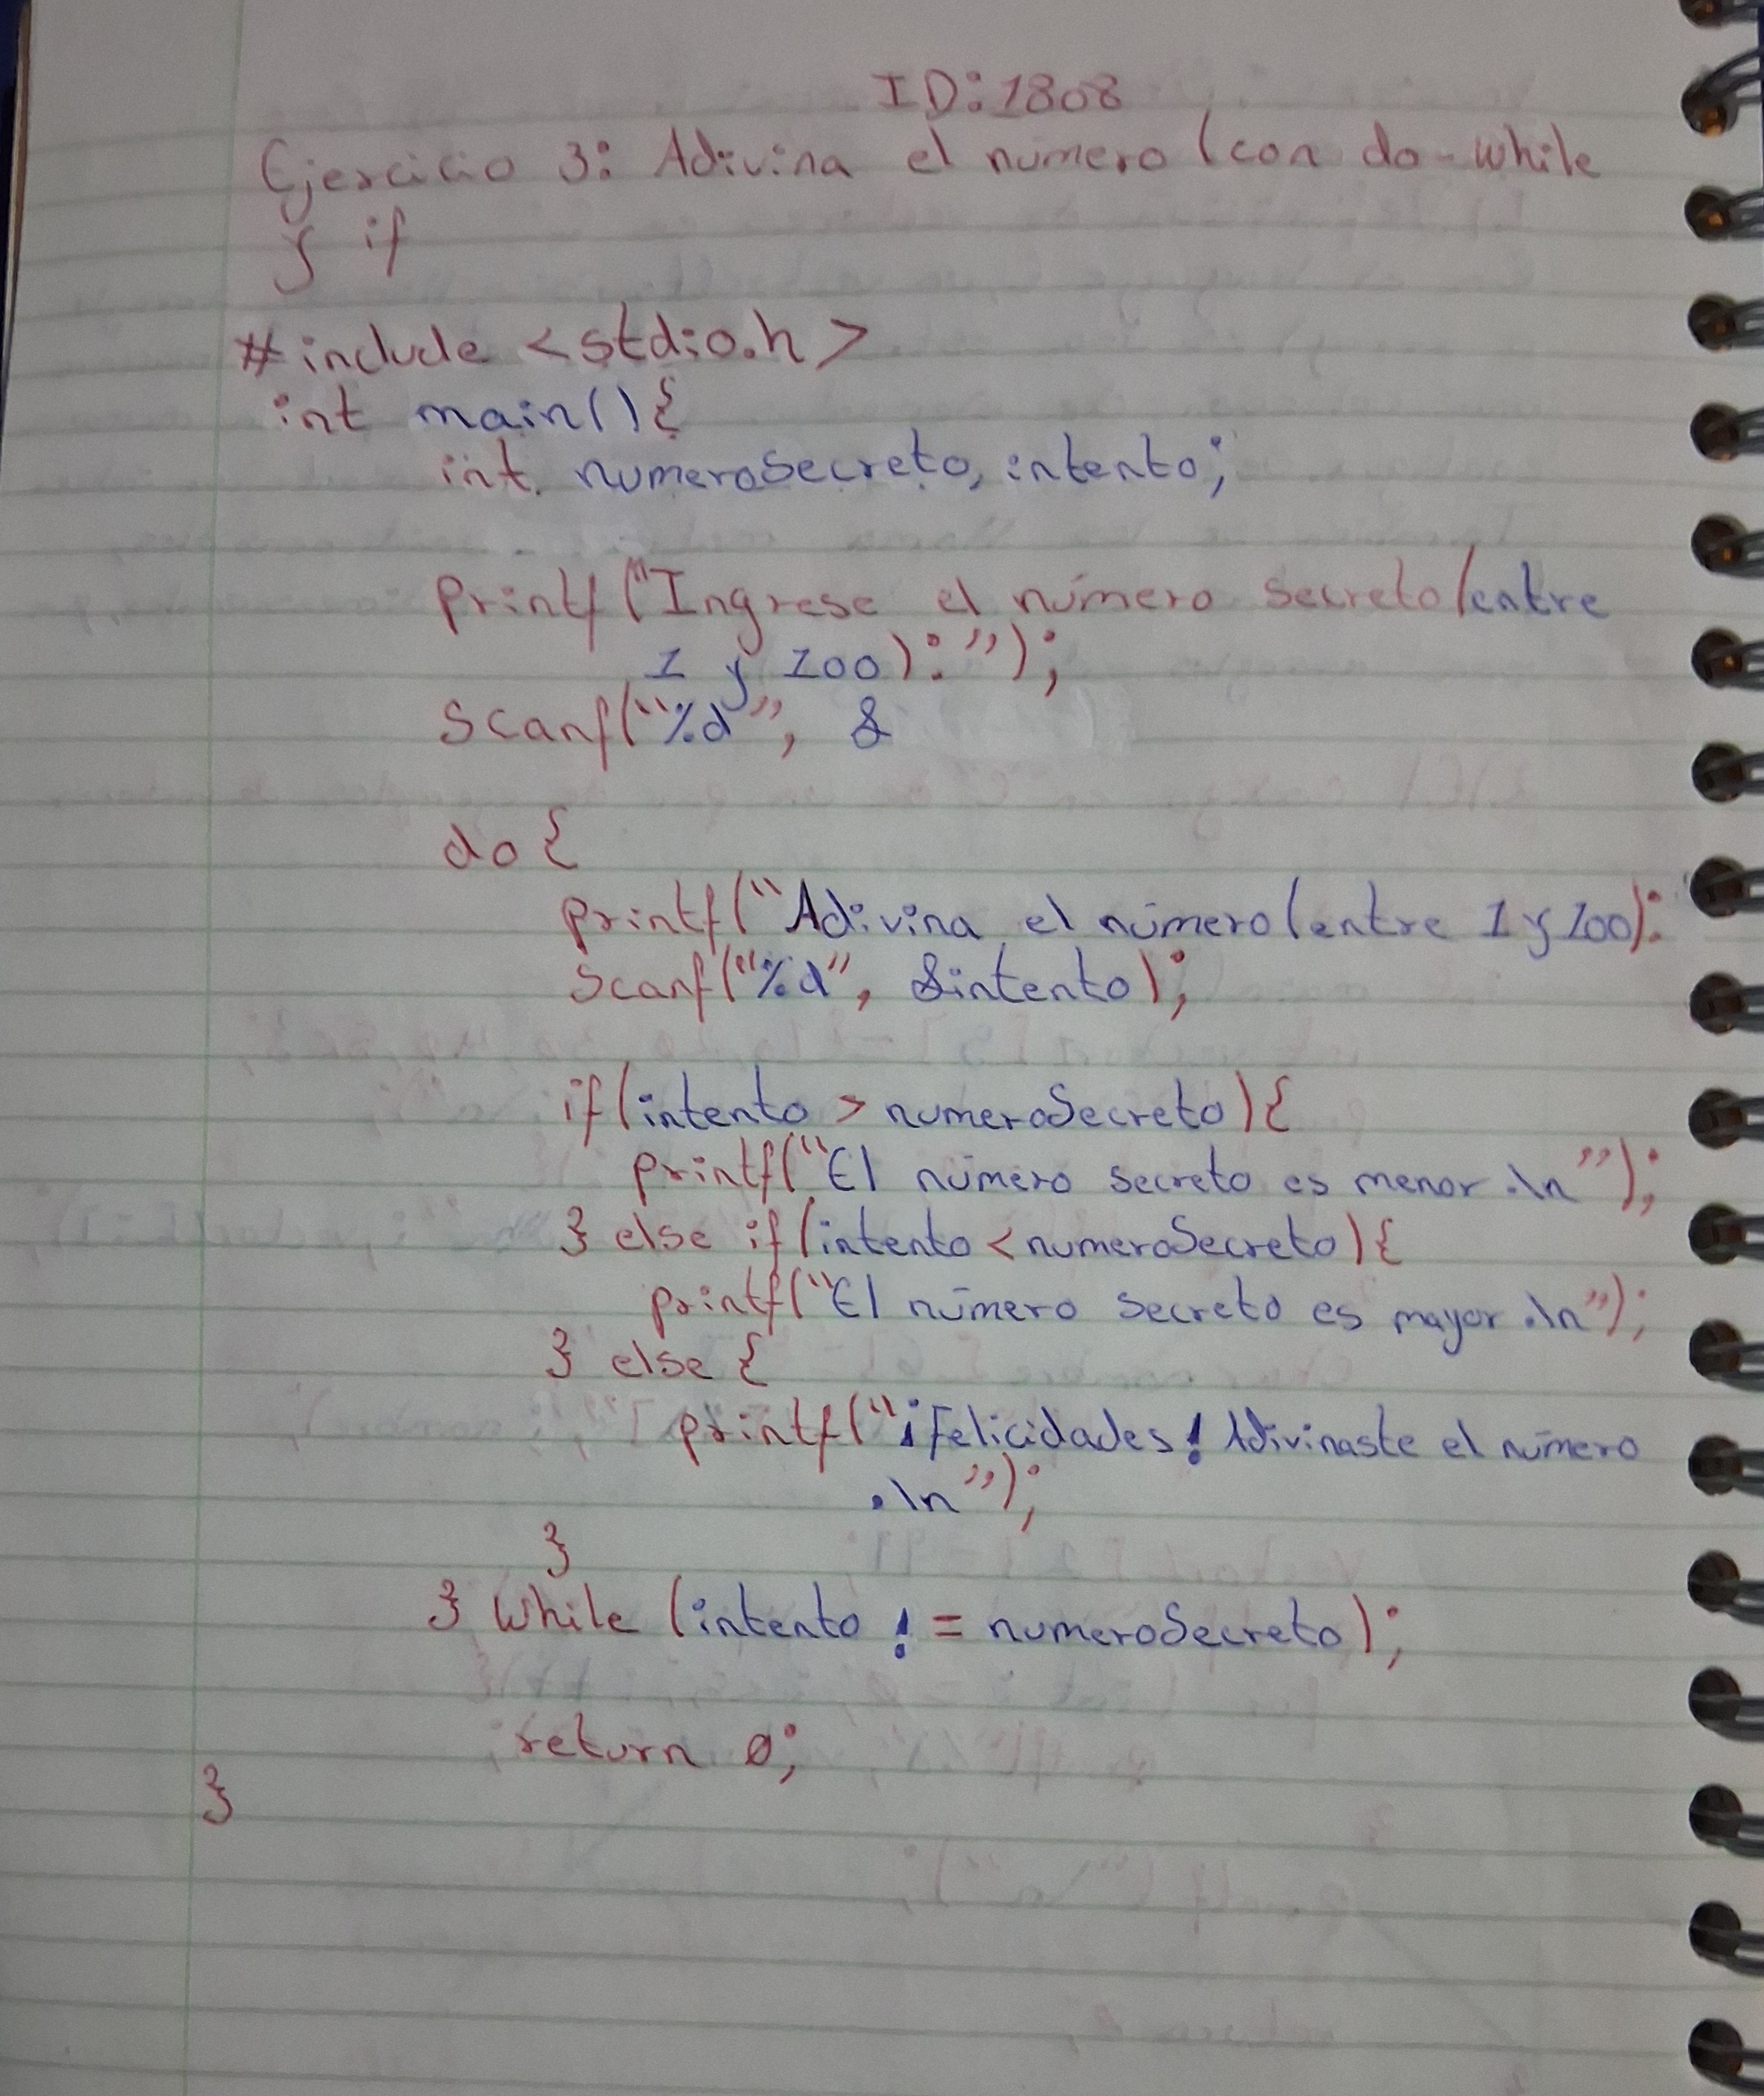 ID:1808
Ejercicio 3: Adivina el número (con do-while
y if
#include <stdio.h>
int main(){
int numeroSecreto, intento;
printf("Ingrese el número secreto(entre
1 y 100):");
scanf("%d", &
do {
printf("Adivina el número(entre 1 y 100):
scanf("%d", &intento);
if(intento > numeroSecreto){
printf("El número secreto es menor.\n");
} else if(intento < numeroSecreto){
printf("El número secreto es mayor.\n");
} else {
printf("¡Felicidades! Adivinaste el número
.\n");
}
} while (intento != numeroSecreto);
return 0;
}